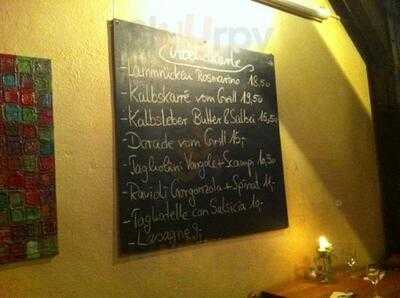 Lammrücken Rosmarino 18,50
- Kalbskarré vom Grill 19,50
- Kalbsleber Butter & Salbei 15,50
- Dorade vom Grill 15,-
- Tagliolini Vongole + Scampi
- Ravioli Gorgonzola + Spinat 11,-
- Tagliatelle con Salsicia 10,-
- Lasagne 9,-